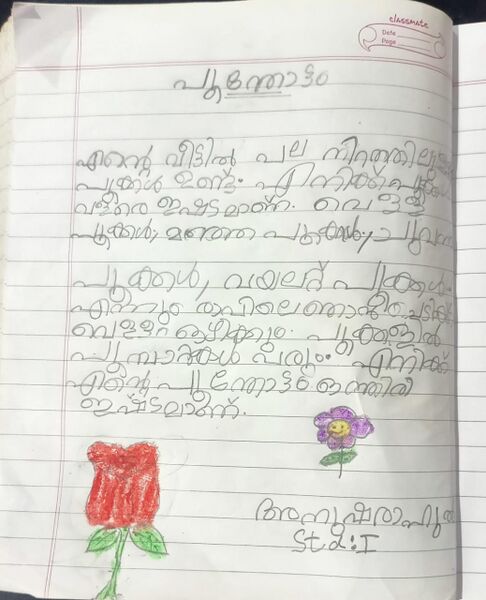 classmate
Date
Page
പൂന്തോട്ടം
എന്റെ വീട്ടിൽ പല നിറത്തിലുള്ള
പൂക്കൾ ഉണ്ട്. എനിക്ക് പൂക്കൾ
വളരെ ഇഷ്ടമാണ്. വെള്ള
പൂക്കൾ, മഞ്ഞ പൂക്കൾ, ചുവന്ന
പൂക്കൾ, വയലറ്റ് പൂക്കൾ.
എന്നും രാവിലെ ഞാൻ
വെള്ളം ഒഴിക്കും. പൂക്കളിൽ
പൂമ്പാറ്റകൾ വരും. എനിക്ക്
എന്റെ പൂന്തോട്ടം ഒത്തിരി
ഇഷ്ടമാണ്.
Std: I